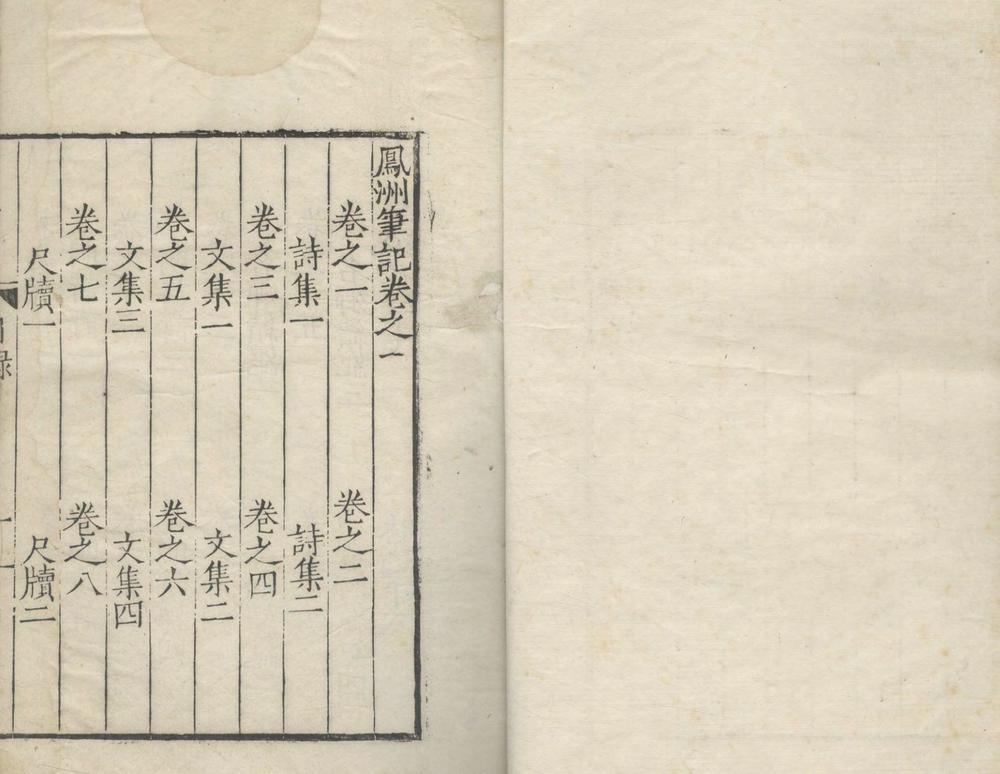 鳳洲筆記卷之一
卷之一　卷之二
詩集一　詩集二
卷之三　卷之四
文集一　文集二
卷之五　卷之六
文集三　文集四
卷之七　卷之八
尺牘一　尺牘二